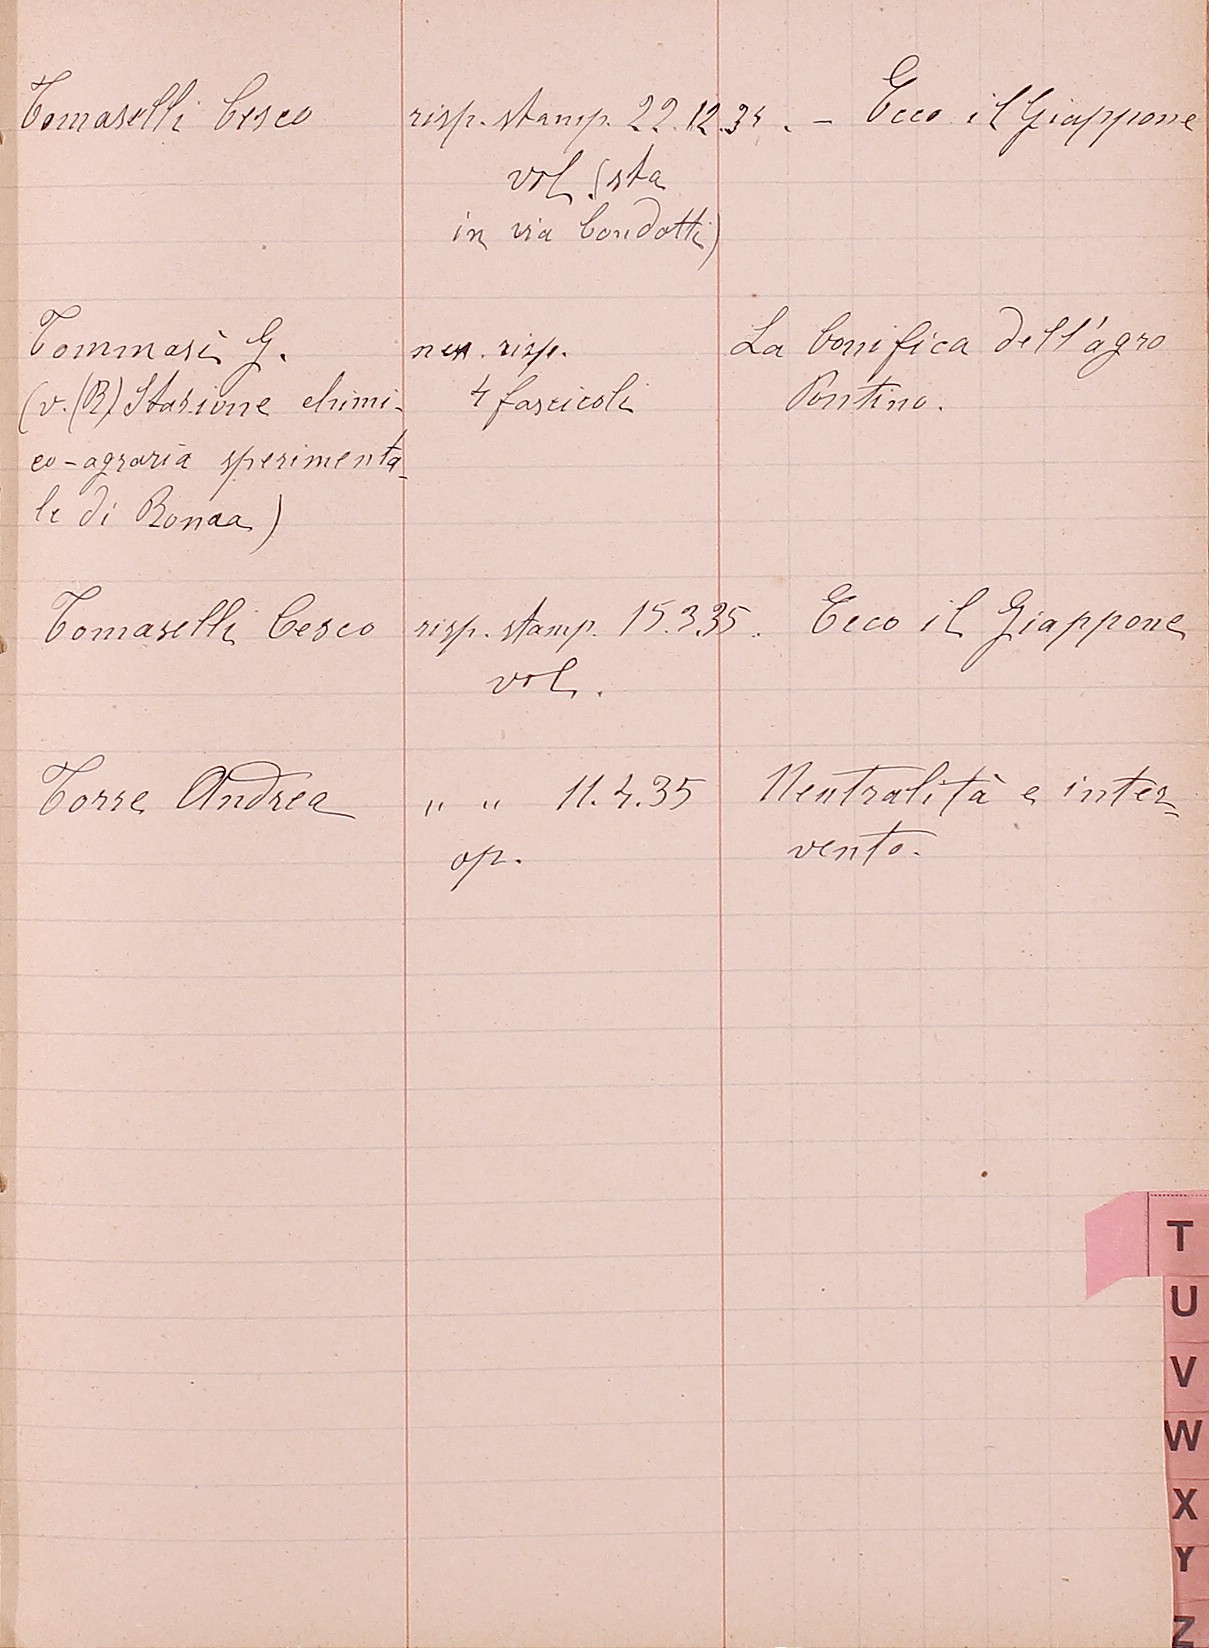 Tomaselli Cesco risp. stamp. 22.12.34. – Ecco il Giappone
vol (sta
in via Condotti)
Tommasi G. nen. risp. La bonifica dell'agro
(v. (R) Stazione chimi- 4 fascicoli Pontino.
co-agraria sperimenta-
le di Roma)
Tomaselli Cesco risp. stamp. 15.3.35. Ecco il Giappone
vol.
Torre Andrea " " 11.4.35 Neutralità e inter-
op. vento.
T
U
V
W
X
Y
Z